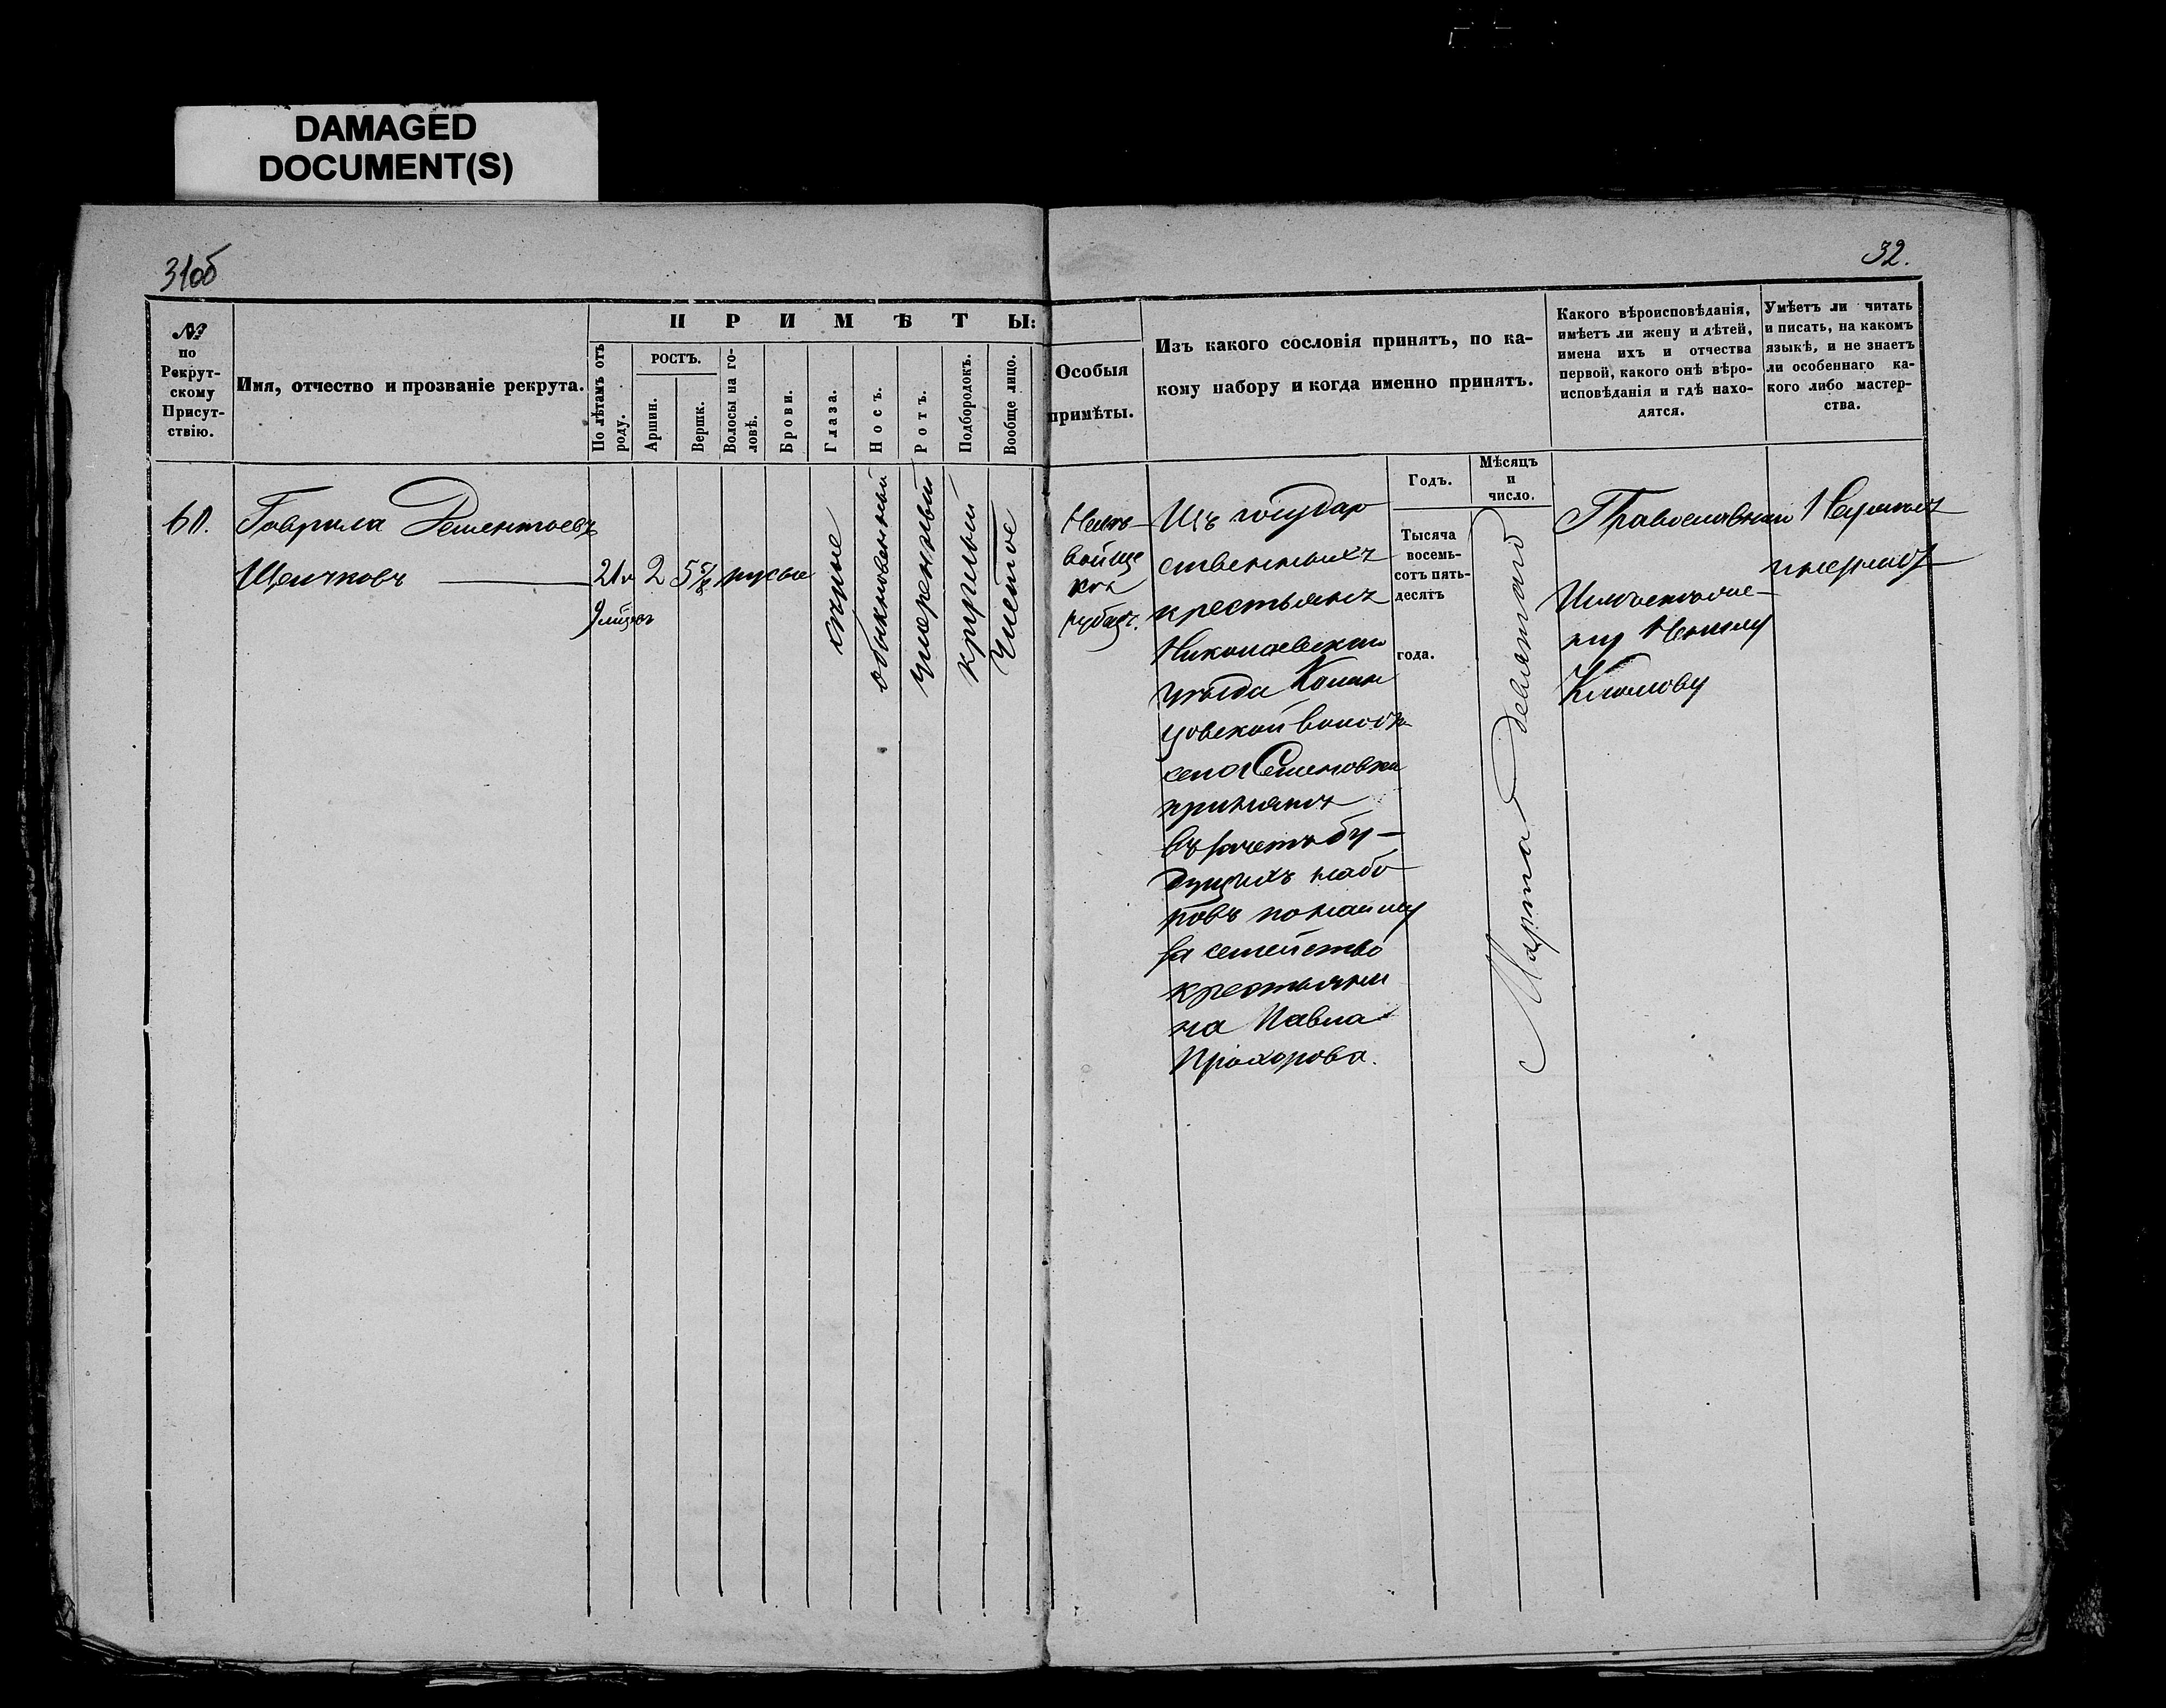 DAMAGED
DOCUMENT(S)
31об
32.
№
по
Рекрут-
скому
Присут-
ствію.
Имя, отчество и прозваніе рекрута.
ПРИМѢТЫ:
По лѣтамъ отъ
роду.
РОСТЪ.
Аршин.
Вершк.
Волосы на го-
ловѣ.
Брови.
Глаза.
Носъ.
Ротъ.
Подбородокъ.
Вообще лицо.
Особыя
примѣты.
Изъ какого сословія принятъ, по ка-
кому набору и когда именно принятъ.
Какого вѣроисповѣданія,
имѣетъ ли жену и дѣтей,
имена ихъ и отчества
первой, какого онѣ вѣро-
исповѣданія и гдѣ нахо-
дятся.
Умѣетъ ли читать
и писать, на какомъ
языкѣ, и не знаетъ
ли особеннаго ка-
кого либо мастер-
ства.
Годъ.
Мѣсяцъ
и
число.
60.
Гаврила Дементьевъ
Щелчковъ
21
2
5 5/8
русые
обыкновенный
умеренный
круглый
Чистое
щеке
рубецъ.
Изъ государ
ственныхъ
крестьянъ
Николаевскаго
уѣзда
села Семеновки
принятъ
въ зачетъ бу-
дущихъ набо
ровъ по найму
за семейство
крестьяни
на Павла
Прохорова.
Тысяча
восемь-
сотъ пять-
десятъ
года.
Марта девятаго
Православнаго
Имѣетъ
Неграмот